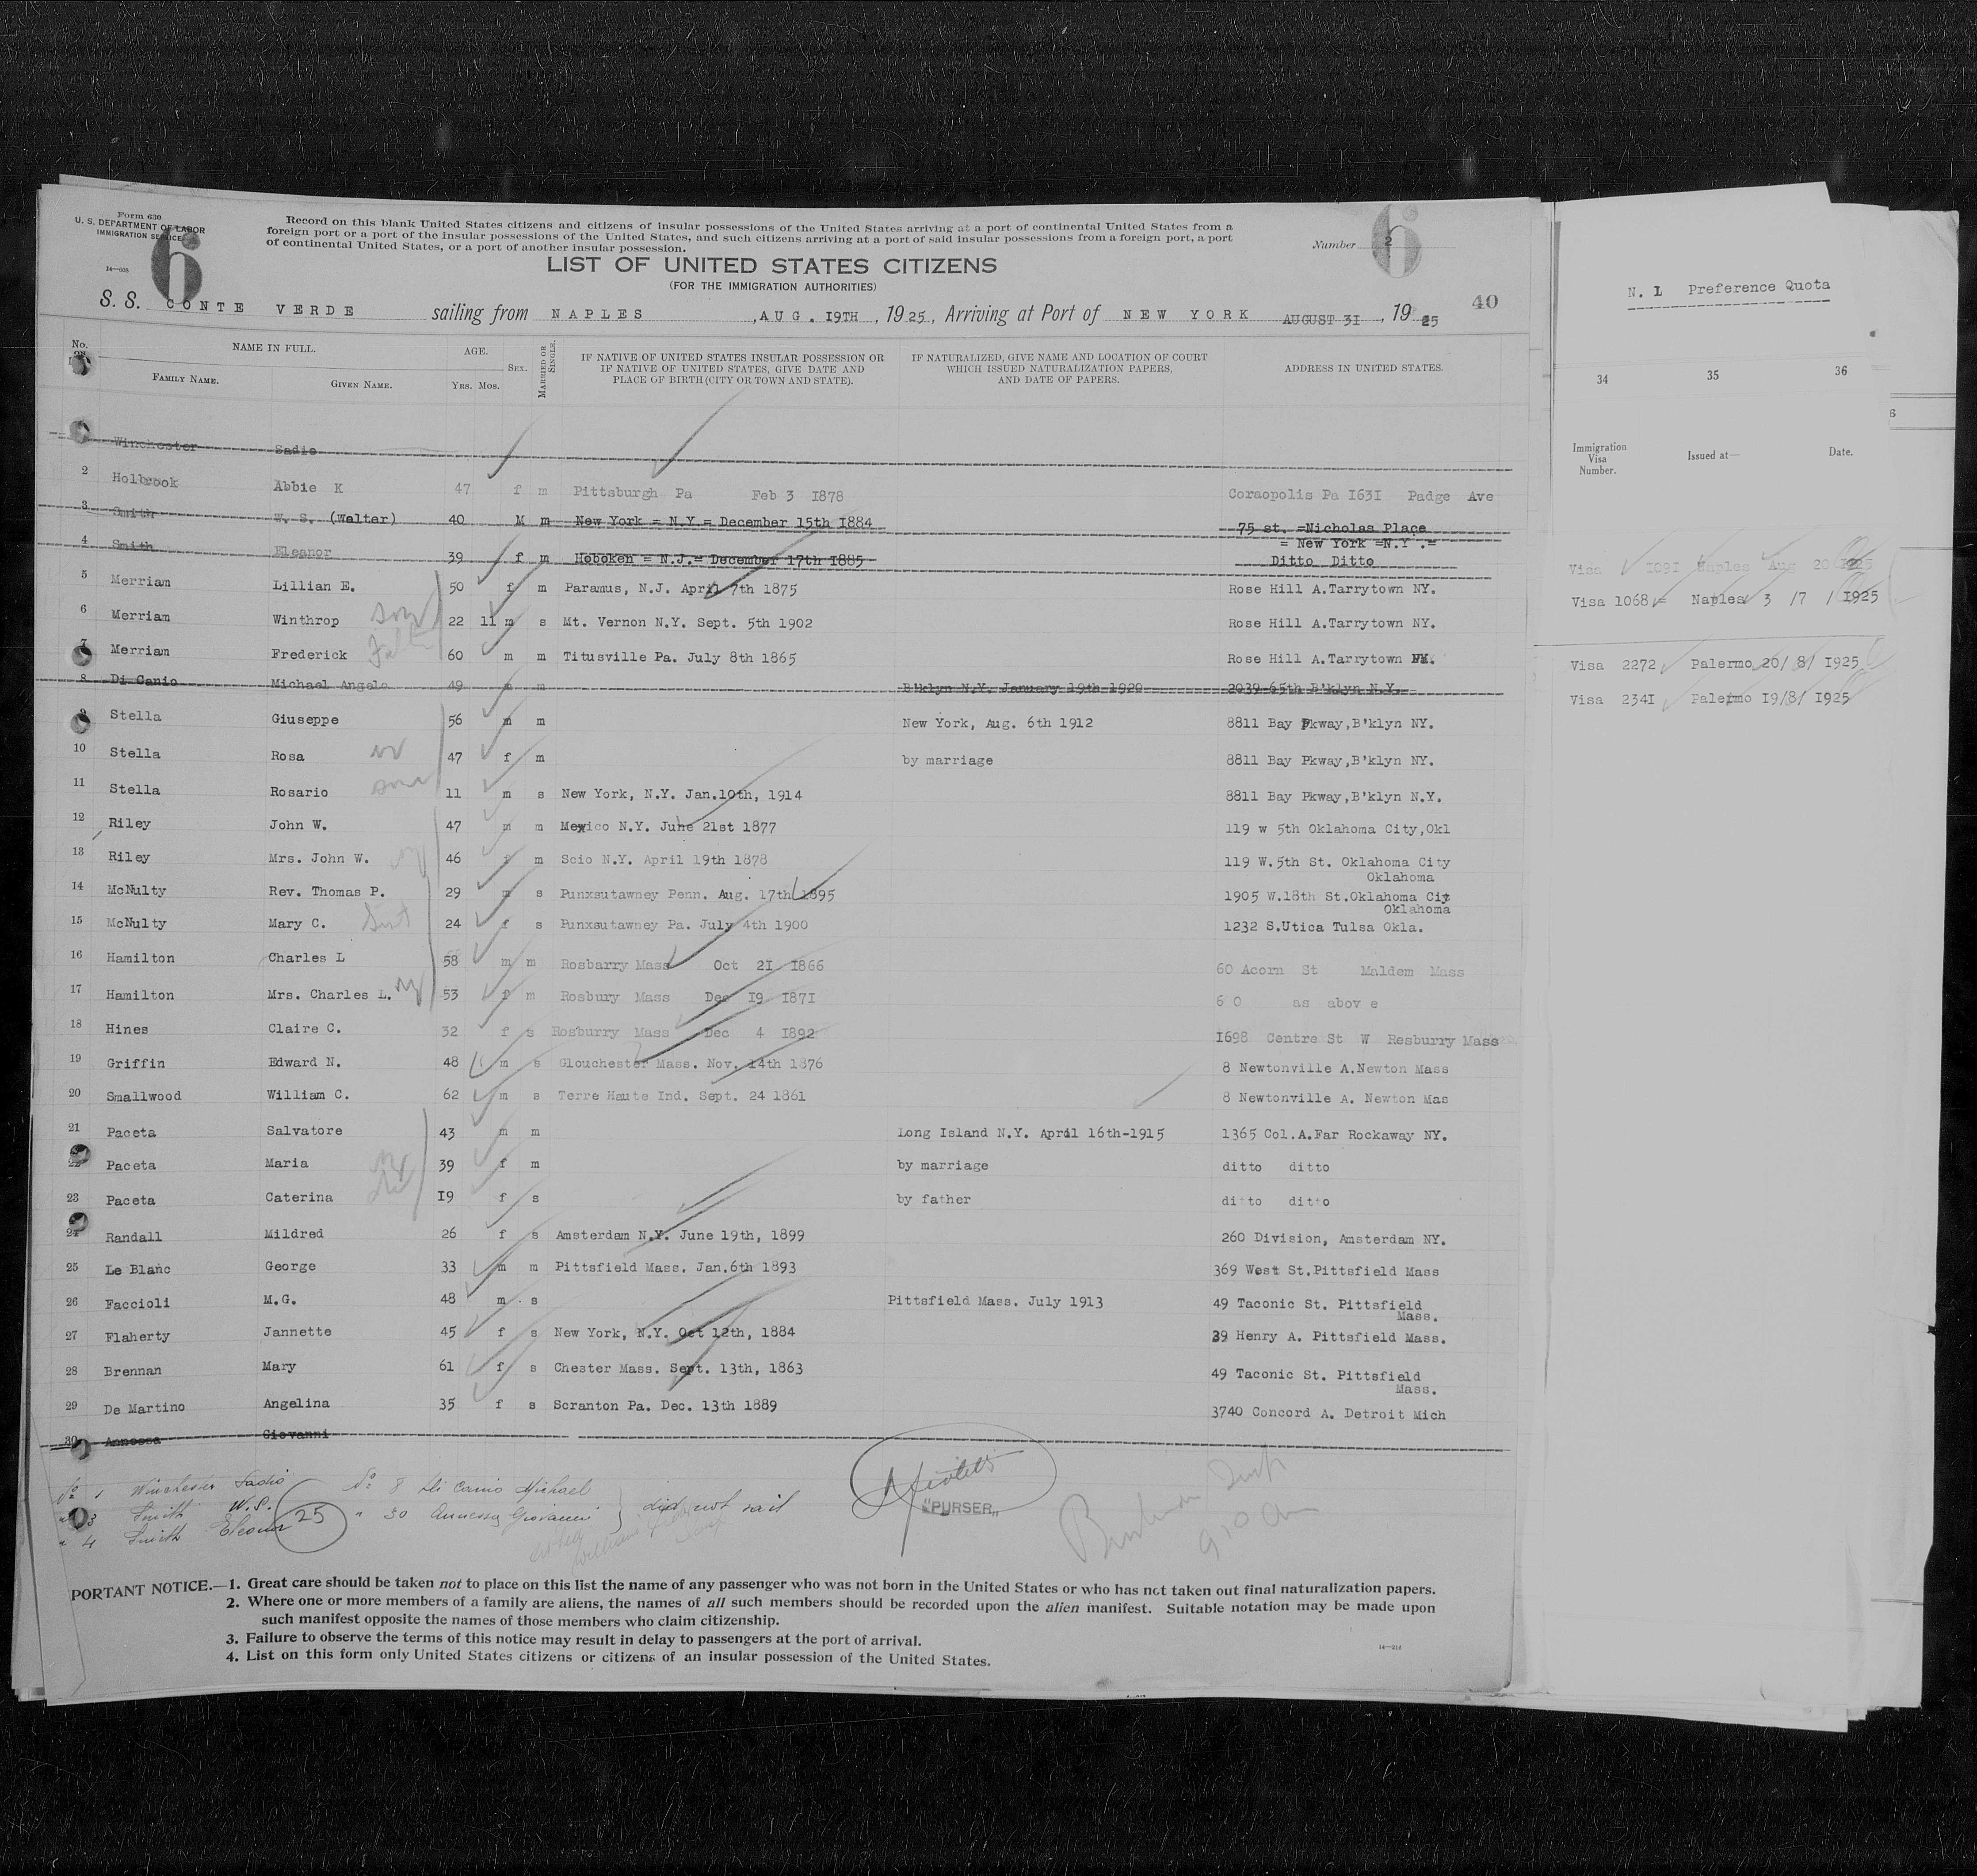 Form 630
U. S. DEPARTMENT OF LABOR
IMMIGRATION SERVICE
14—038
6
Record on this blank United States citizens and citizens of insular possessions of the United States arriving at a port of continental United States from a
foreign port or a port of the insular possessions of the United States, and such citizens arriving at a port of said insular possessions from a foreign port, a port
of continental United States, or a port of another insular possession.
Number 2
6
LIST OF UNITED STATES CITIZENS
(FOR THE IMMIGRATION AUTHORITIES)
40
S. S. CONTE VERDE sailing from NAPLES , AUG. I9TH , 1925, Arriving at Port of NEW YORK AUGUST 3I , 1925
No. NAME IN FULL. AGE. SEX. MARRIED OR SINGLE. IF NATIVE OF UNITED STATES INSULAR POSSESSION OR IF NATIVE OF UNITED STATES, GIVE DATE AND PLACE OF BIRTH (CITY OR TOWN AND STATE). IF NATURALIZED, GIVE NAME AND LOCATION OF COURT WHICH ISSUED NATURALIZATION PAPERS, AND DATE OF PAPERS. ADDRESS IN UNITED STATES.
FAMILY NAME. GIVEN NAME. YRS. MOS.
Winchester Sadie
2 Holbrook Abbie K 47 f m Pittsburgh Pa Feb 3 I878 Coraopolis Pa I63I Padge Ave
3 Smith W. S. (Walter) 40 M m New York = N.Y.= December 15th I884 75 st. =Nicholas Place
= New York =N.Y .=
4 Smith Eleanor 39 f m Hoboken = N.J.= December 17th I885 Ditto Ditto
5 Merriam Lillian E. 50 f m Paramus, N.J. April 7th 1875 Rose Hill A.Tarrytown NY.
6 Merriam Winthrop son 22 11 m s Mt. Vernon N.Y. Sept. 5th 1902 Rose Hill A.Tarrytown NY.
7 Merriam Frederick 60 m m Titusville Pa. July 8th 1865 Rose Hill A.Tarrytown NY.
8 Di Canio Michael Angelo 49 m m B'klyn N.Y. January 19th 1920 2039-65th B'klyn N.Y.
9 Stella Giuseppe 56 m m New York, Aug. 6th 1912 8811 Bay Pkway,B'klyn NY.
10 Stella Rosa 47 f m by marriage 8811 Bay Pkway,B'klyn NY.
11 Stella Rosario son 11 m s New York, N.Y. Jan.10th, 1914 8811 Bay Pkway,B'klyn N.Y.
12 Riley John W. 47 m m Mexico N.Y. June 21st 1877 119 w 5th Oklahoma City,Okl
13 Riley Mrs. John W. 46 f m Scio N.Y. April 19th 1878 119 W.5th St. Oklahoma City
Oklahoma
14 McNulty Rev. Thomas P. 29 m s Punxsutawney Penn. Aug. 17th 1895 1905 W.18th St.Oklahoma Cit
Oklahoma
15 McNulty Mary C. 24 f s Punxsutawney Pa. July 4th 1900 1232 S.Utica Tulsa Okla.
16 Hamilton Charles L 58 m m Rosbarry Mass Oct 2I I866 60 Acorn St Maldem Mass
17 Hamilton Mrs. Charles L. 53 f m Rosbury Mass Dec I9 I87I 6 0 as abov e
18 Hines Claire C. 32 f s Rosburry Mass Dec 4 I892 I698 Centre St W Resburry Mass
19 Griffin Edward N. 48 m s Glouchester Mass. Nov. 14th 1876 8 Newtonville A.Newton Mass
20 Smallwood William C. 62 m s Terre Haute Ind. Sept. 24 1861 8 Newtonville A. Newton Mas
21 Paceta Salvatore 43 m m Long Island N.Y. April 16th-1915 1365 Col.A.Far Rockaway NY.
22 Paceta Maria 39 f m by marriage ditto ditto
23 Paceta Caterina I9 f s by father ditto ditto
24 Randall Mildred 26 f s Amsterdam N.Y. June 19th, 1899 260 Division, Amsterdam NY.
25 Le Blanc George 33 m m Pittsfield Mass. Jan.6th 1893 369 West St.Pittsfield Mass
26 Faccioli M.G. 48 m s Pittsfield Mass. July 1913 49 Taconic St. Pittsfield
Mass.
27 Flaherty Jannette 45 f s New York, N.Y. Oct 12th, 1884 39 Henry A. Pittsfield Mass.
28 Brennan Mary 61 f s Chester Mass. Sept. 13th, 1863 49 Taconic St. Pittsfield
Mass.
29 De Martino Angelina 35 f s Scranton Pa. Dec. 13th 1889 3740 Concord A. Detroit Mich
30 Annessa Giovanni
No 1 Winchester Sadie No 8 Di Canio Michael
" 3 Smith W.S. 25 " 30 Annessa Giovanni } did not sail
" 4 Smith Eleanor
"PURSER"
PORTANT NOTICE.—1. Great care should be taken not to place on this list the name of any passenger who was not born in the United States or who has not taken out final naturalization papers.
2. Where one or more members of a family are aliens, the names of all such members should be recorded upon the alien manifest. Suitable notation may be made upon
such manifest opposite the names of those members who claim citizenship.
3. Failure to observe the terms of this notice may result in delay to passengers at the port of arrival.
4. List on this form only United States citizens or citizens of an insular possession of the United States.
14—214
N. I Preference Quota
34 35 36
6
Immigration Visa Number. Issued at— Date.
Visa I09I Naples Aug 20 1925
Visa 1068 = Naples 3 /7 / I925
Visa 2272 Palermo 20/ 8/ I925
Visa 234I Palermo I9/8/ I925